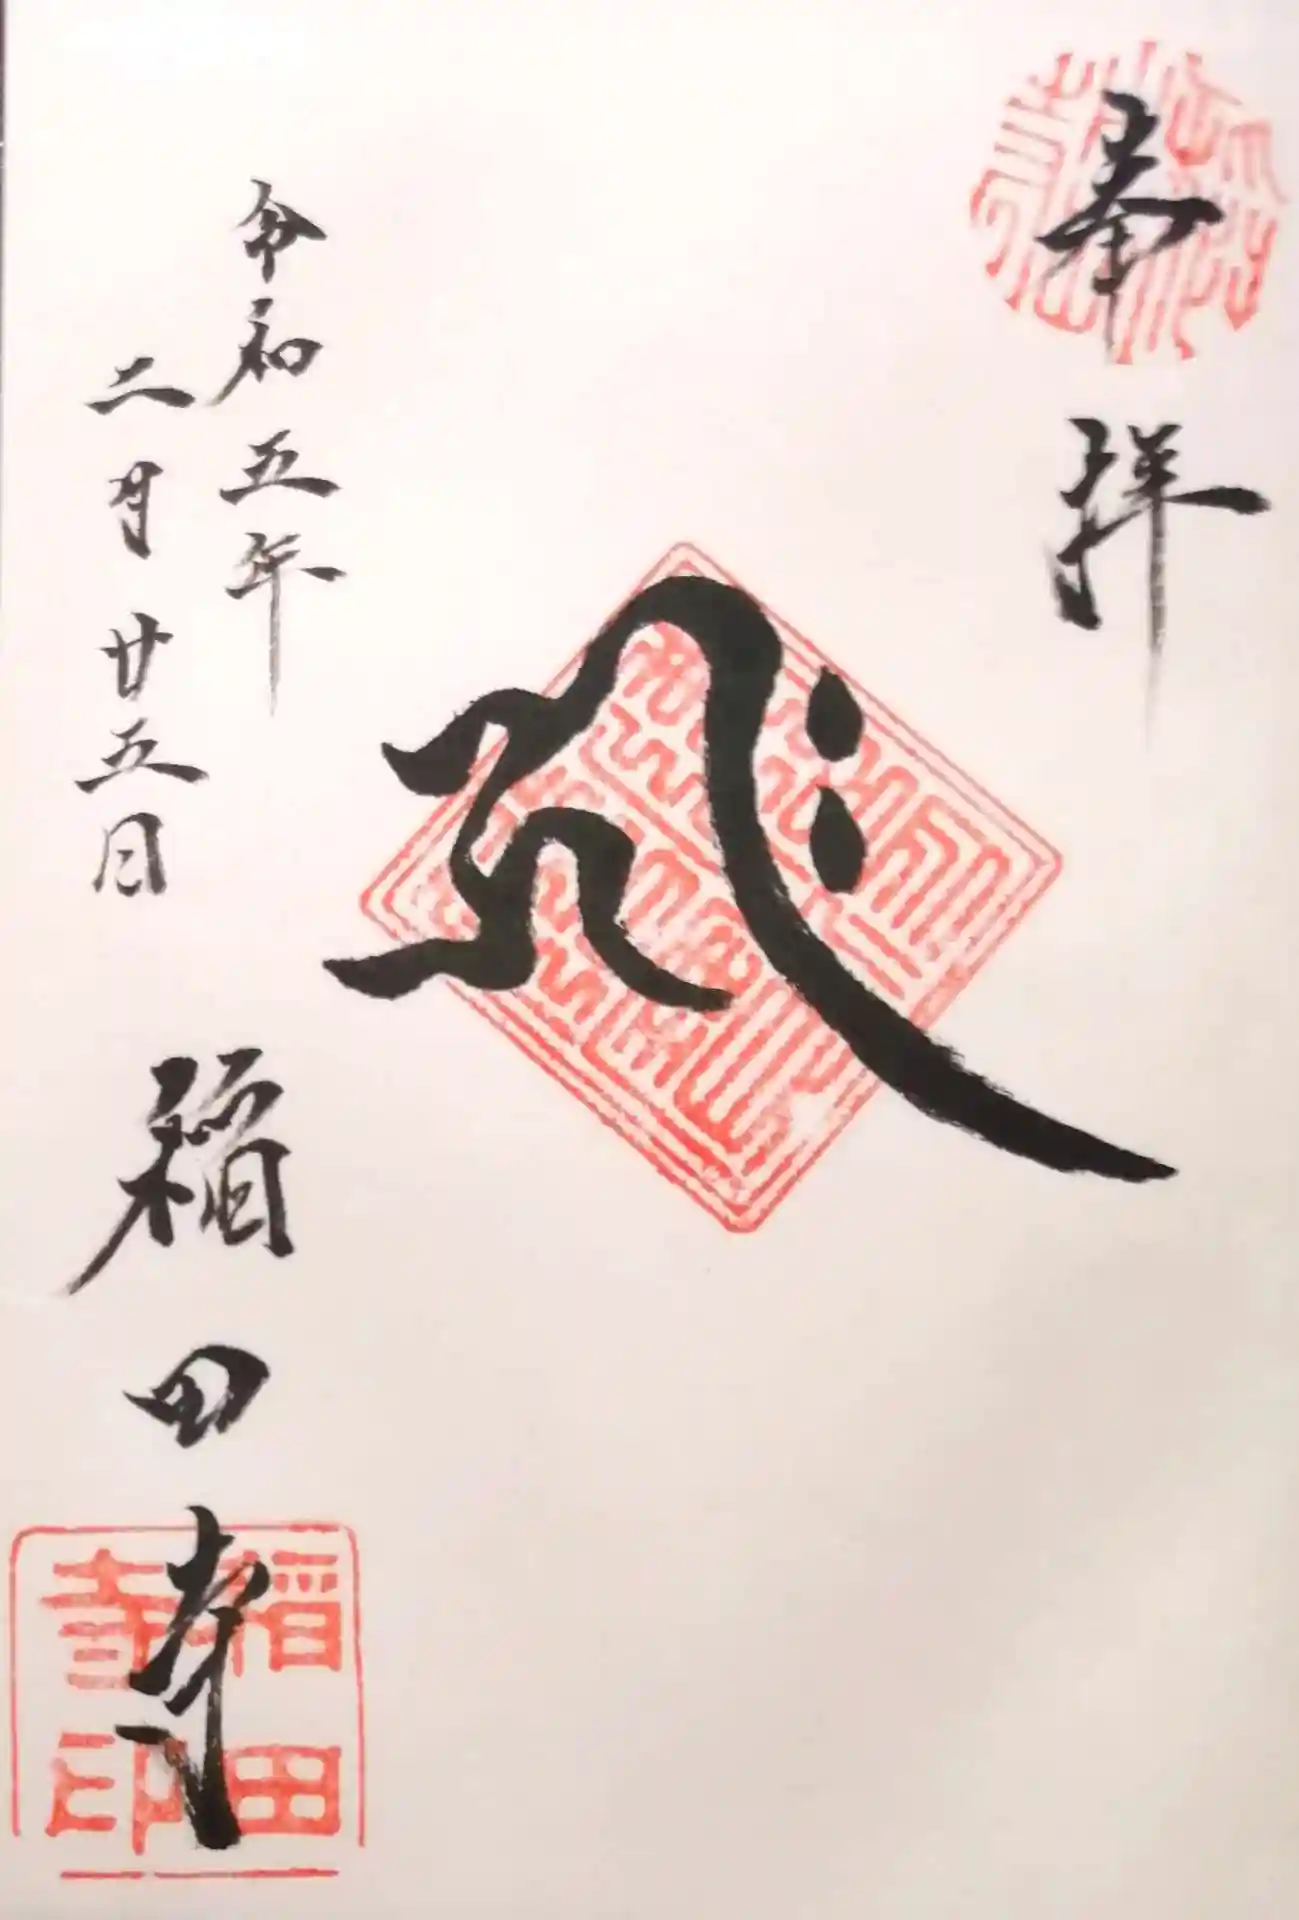 奉拝
𑖮𑖿𑖨𑖱𑖾
令和五年
二月廿五日
稲田寺
稲田
寺印